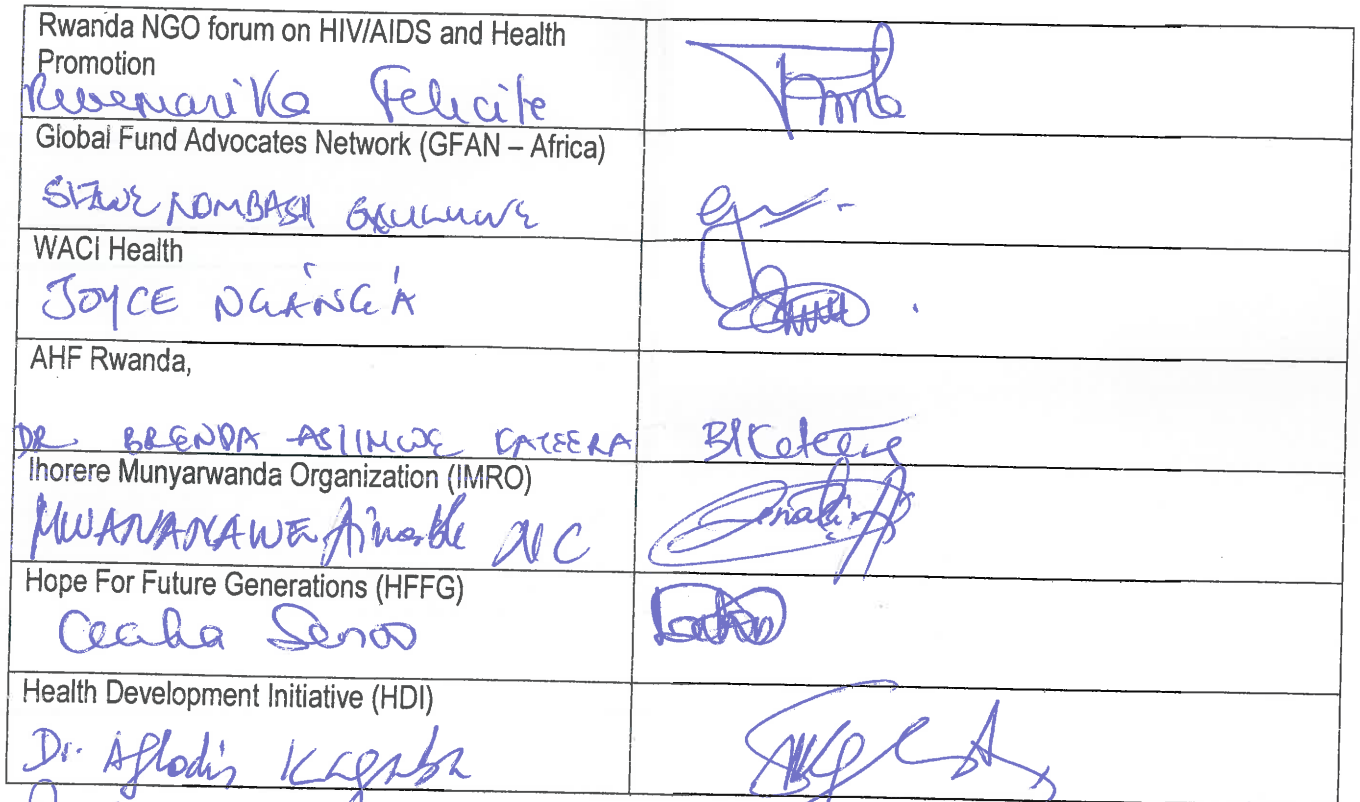 Rwanda NGO forum on HIV/AIDS and Health
Promotion
Rwemarika Felicite
Global Fund Advocates Network (GFAN – Africa)
NOMBASA
WACI Health
JOYCE NGÁNG'A
AHF Rwanda,
DR BRENDA ASIIMWE KATEERA
Ihorere Munyarwanda Organization (IMRO)
MWANANAWE Aimable
Hope For Future Generations (HFFG)
Cecilia Senoo
Health Development Initiative (HDI)
Dr. Aflodis Kagaba